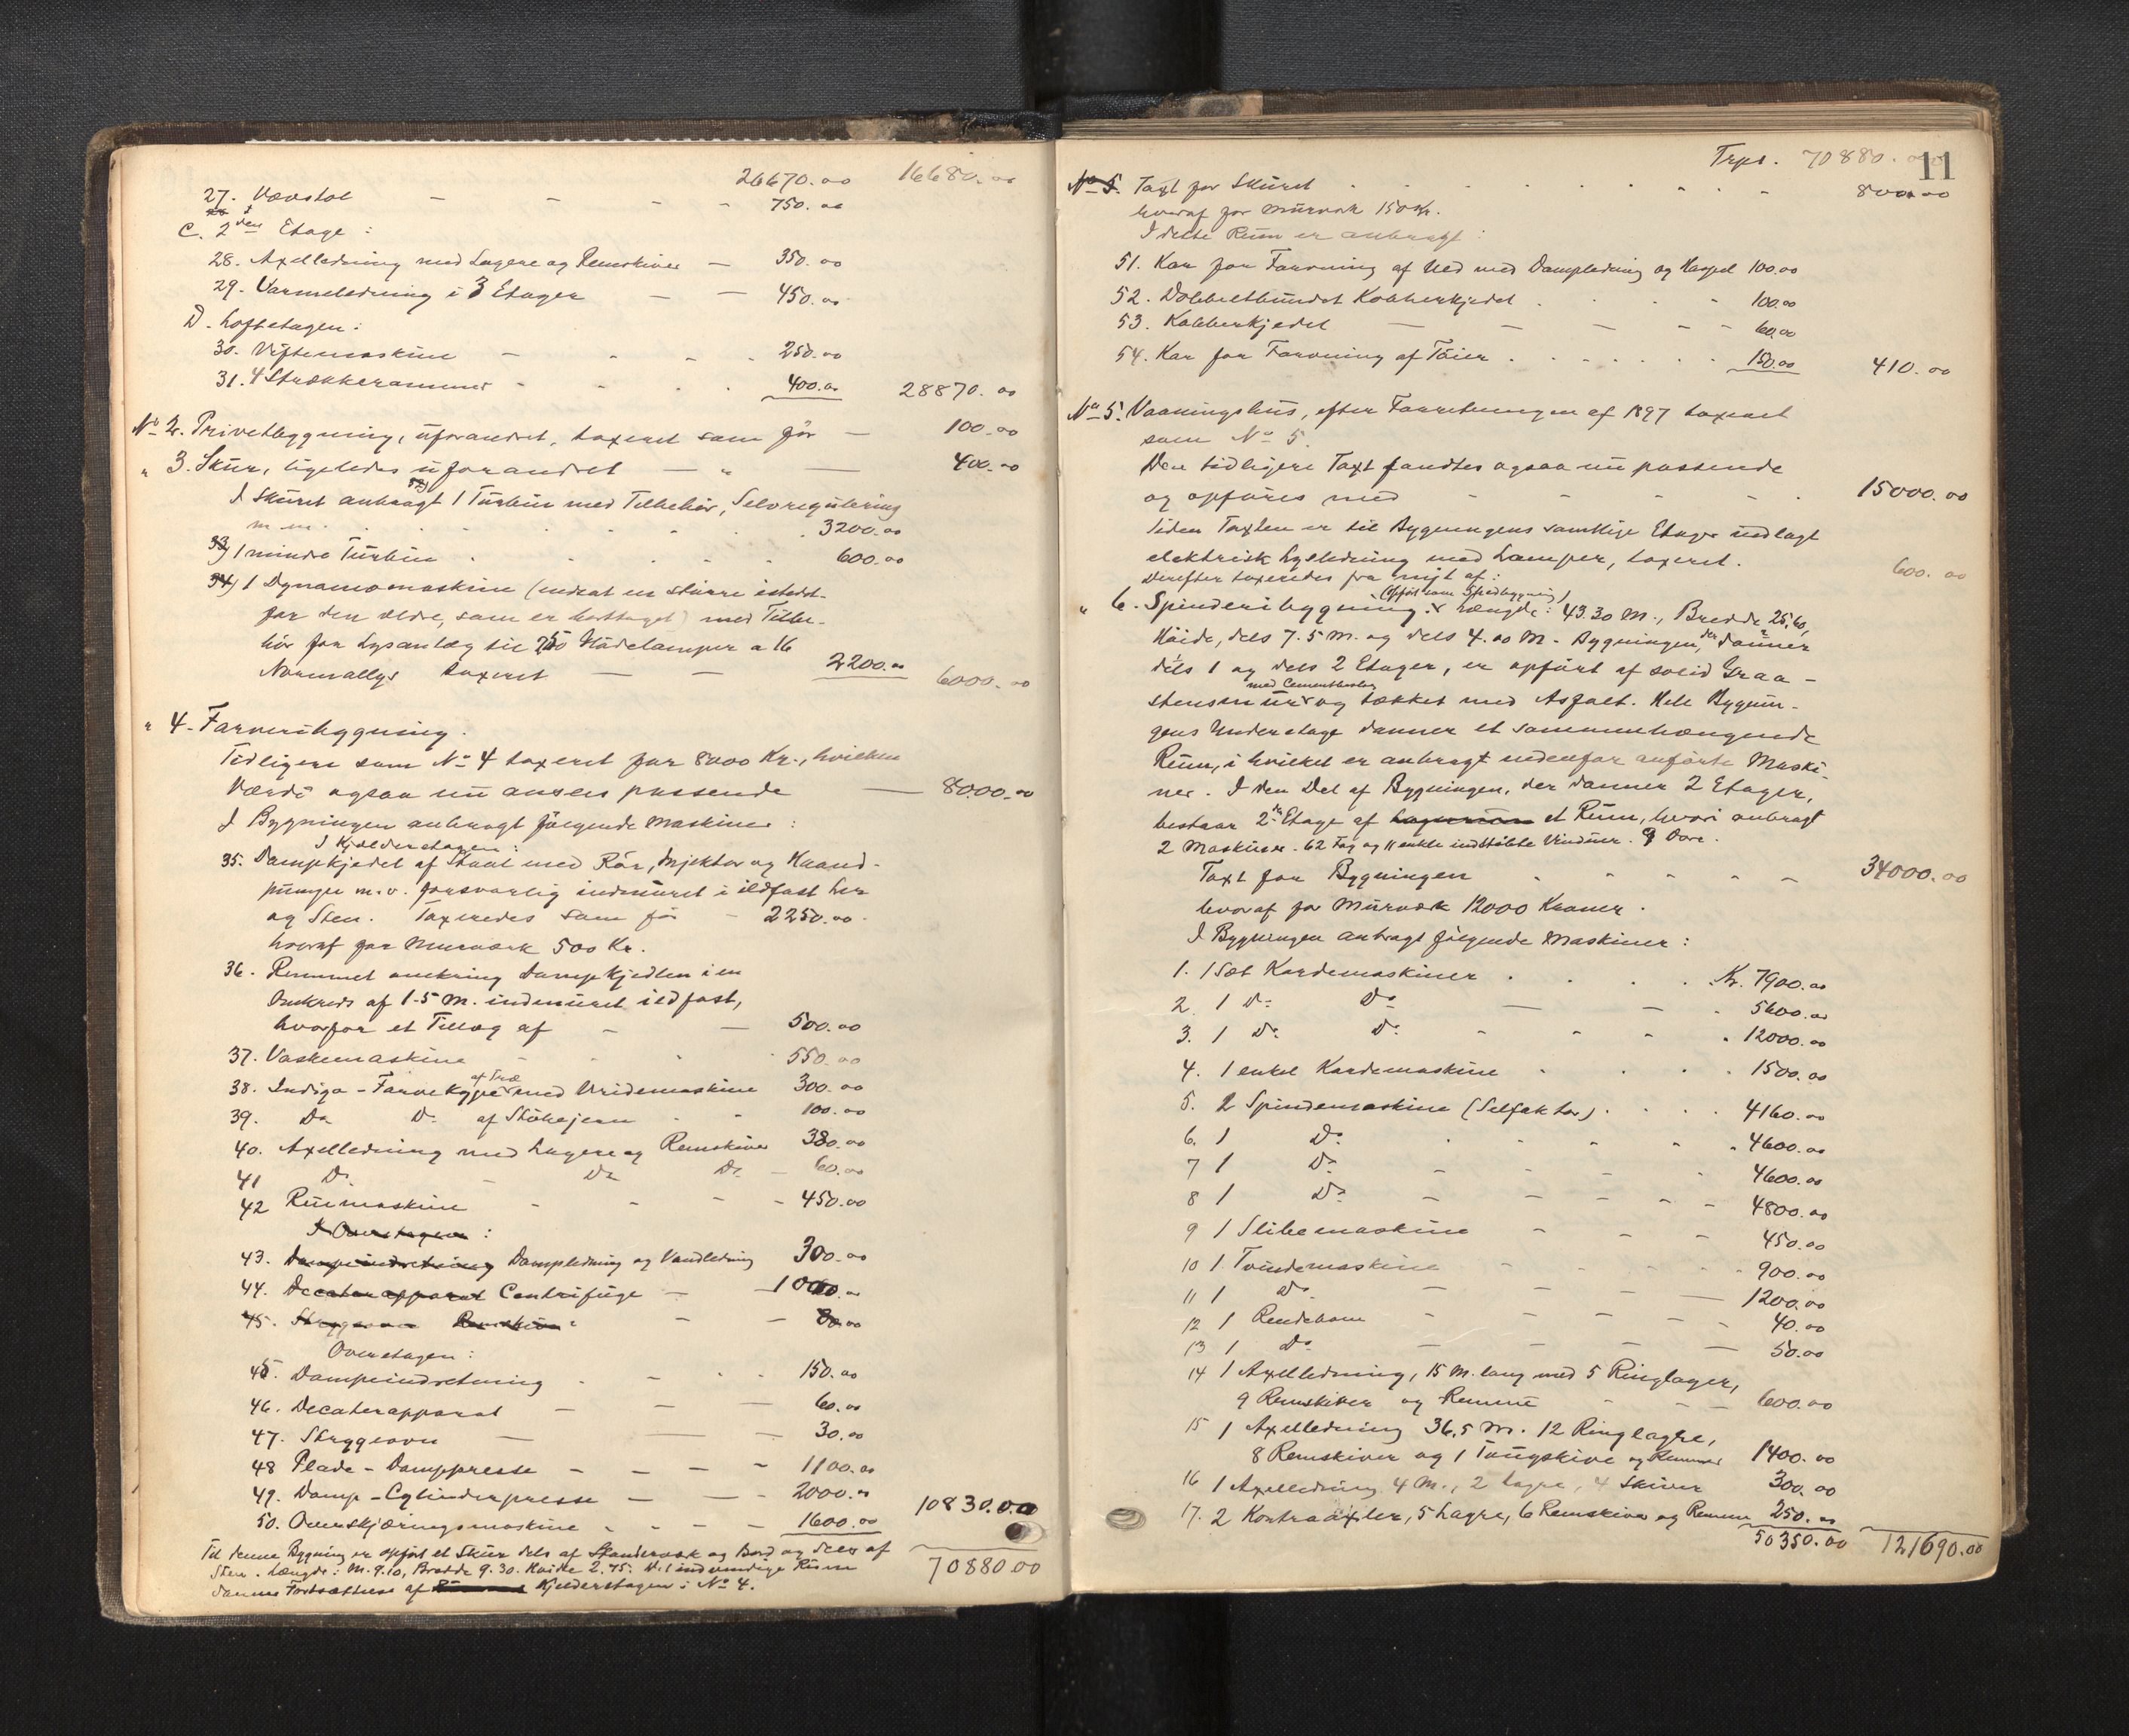 26670.00 16680.00
27. Vævstol - - - - 750.00
C. 2den Etage :
28. Axelledning med Lagere og Remskiver - 350.00
29. Varmeledning i 3 Etager - - 450.00
D. Loftetagen :
30. Viftemaskine - - - - 250.00
31. 4 Strækkerammer - - - . 400.00 28870.00
No 2. Privetbygning, uforandret, taxeret som før - 100.00
" 3. Skur, ligeledes uforandret - " - 400.00
32)
I Skuret anbragt 1 Turbin med Tilbehør, Selvregulering
m m. . . . . . . 3200.00
33) 1 mindre Turbin . . . . . 600.00
34) 1 Dynamomaskine (indsat en større istedet-
for den ældre, som er borttaget) med Tilbe-
hør for Lysanlæg til 250 Glødelamper a 16
Normallys taxeret - - 2200.00 6000.00
" 4. Farveribygning.
Tidligere som No 4 taxeret for 8000 Kr., hvilken
Værdi ogsaa nu ansees passende - 8000.00
I Bygningen anbragt følgende Maskiner :
I Kjelderetagen :
35. Dampkjedel af Staal med Rør, Injektor og Haand-
pumpe m.v. forsvarlig indmuret i ildfast Ler
og Sten. Taxeredes som før - 2250.00
hvoraf for Murværk 500 Kr.
36. Rummet omkring Dampkjedlen i en
Omkreds af 1.5 M. indmuret ildfast,
hvorfor et Tillæg af - - 500.00
37. Vaskemaskine - - - . 550.00
38. Indigo-Farvekype af Træ med Vridemaskine 300.00
39. Do Do af Støbejern - - 100.00
40. Axelledning med Lagere og Remskiver 380.00
41 Do - Do Do - 60.00
42 Ruemaskine - - - - 450.00
I Overetagen :
43. Dampindretning Dampledning og Vandledning 300.00
44. Decaterapparat Centrifuge - - 1000.00
45. Stryggeovn - - 80.00
Overetagen :
45. Dampindretning . - - . 150.00
46. Decaterapparat - - - 60.00
47. Stryggeovn - - - 30.00
48 Plade-Damppresse - - - - 1100.00
49. Damp-Cylinderpresse - - - 2000.00
50. Overskjæringsmaskine - - - - 1600.00 10830.00
Til denne Bygning er opført et Skur dels af Standerværk og Bord og dels af
Sten. Længde: M. 9.10, Bredde 9.30. Høide 2.75. Det indvendige Rum
danner Fortsættelse af Kjelderetagen i No 4.
70880.00
Trps. 70880.00
11
No 5. Taxt for Skuret . . . . . . . 800.00
hvoraf for Murværk 150 Kr.
I dette Rum er anbragt :
51. Kar for Farvning af Uld med Dampledning og Haspel 100.00
52. Dobbeltbundet Kobberkjedel . . . - 100.00
53. Kobberkjedel - - - - - 60.00
54. Kar for Farvning af Tøier . . . . . . . 150.00 410.00
No 5. Vaaningshus, efter Forretningen af 1897 taxeret
som No 5.
Den tidligere Taxt fandtes ogsaa nu passende
og opføres med - - - - . 15000.00
Siden Taxten er til Bygningens samtlige Etager indlagt
elektrisk Lysledning med Lamper, taxeret. 600.00
Derefter taxeredes fra nyt af :
(opført som Spindbygning)
" 6. Spinderibygning. Længde: 43.30 M., Bredde 25.60,
Høide, dels 7.5 M. og dels 4.00 M. Bygningen, der danner
dels 1 og dels 2 Etager, er opført af solid Graa-
med Cementbeslag
stensmur og tækket med Asfalt. Hele Bygnin-
gens Underetage danner et sammenhængende
Rum, i hvilket er anbragt nedenfor anførte Maski-
ner. I den Del af Bygningen, der danner 2 Etager,
bestaar 2den Etage af et Rum, hvori anbragt
2 Maskiner. 62 Fag og 11 enkle indstøbte Vinduer. 9 Døre.
Taxt for Bygningen . - - - - 34000.00
hvoraf for Murværk 12000 Kroner.
I Bygningen anbragt følgende Maskiner :
1. 1 Sæt Kardemaskiner . . . . Kr. 7900.00
2. 1 Do Do - - . 5600.00
3. 1 Do Do - - - . 12000.00
4. 1 enkel Kardemaskine . . . . 1500.00
5. 2 Spindemaskine (Selfaktor) . . . . 4160.00
6. 1 Do . - - - . 4600.00
7 1 Do - - - . 4600.00
8 1 Do - - - - 4800.00
9 1 Slibemaskine - - - 450.00
10 1 Tvindemaskine - - - - 900.00
11 1 Do - - - - 1200.00
12 1 Rendebom - - - - - 40.00
13 1 Do - - - - 50.00
14 1 Axelledning, 15 M. lang med 5 Ringlager,
9 Remskiver og Remme - - - 600.00
15 1 Axelledning 36,5 M. 12 Ringlagre,
8 Remskiver og 1 Tougskive og Remmer 1400.00
16 1 Axelledning 4 M., 2 Lagre, 4 Skiver 300.00
17. 2 Kontraaxler, 5 Lagre, 6 Remskiver og Remme 250.00
50350.00 121690.00